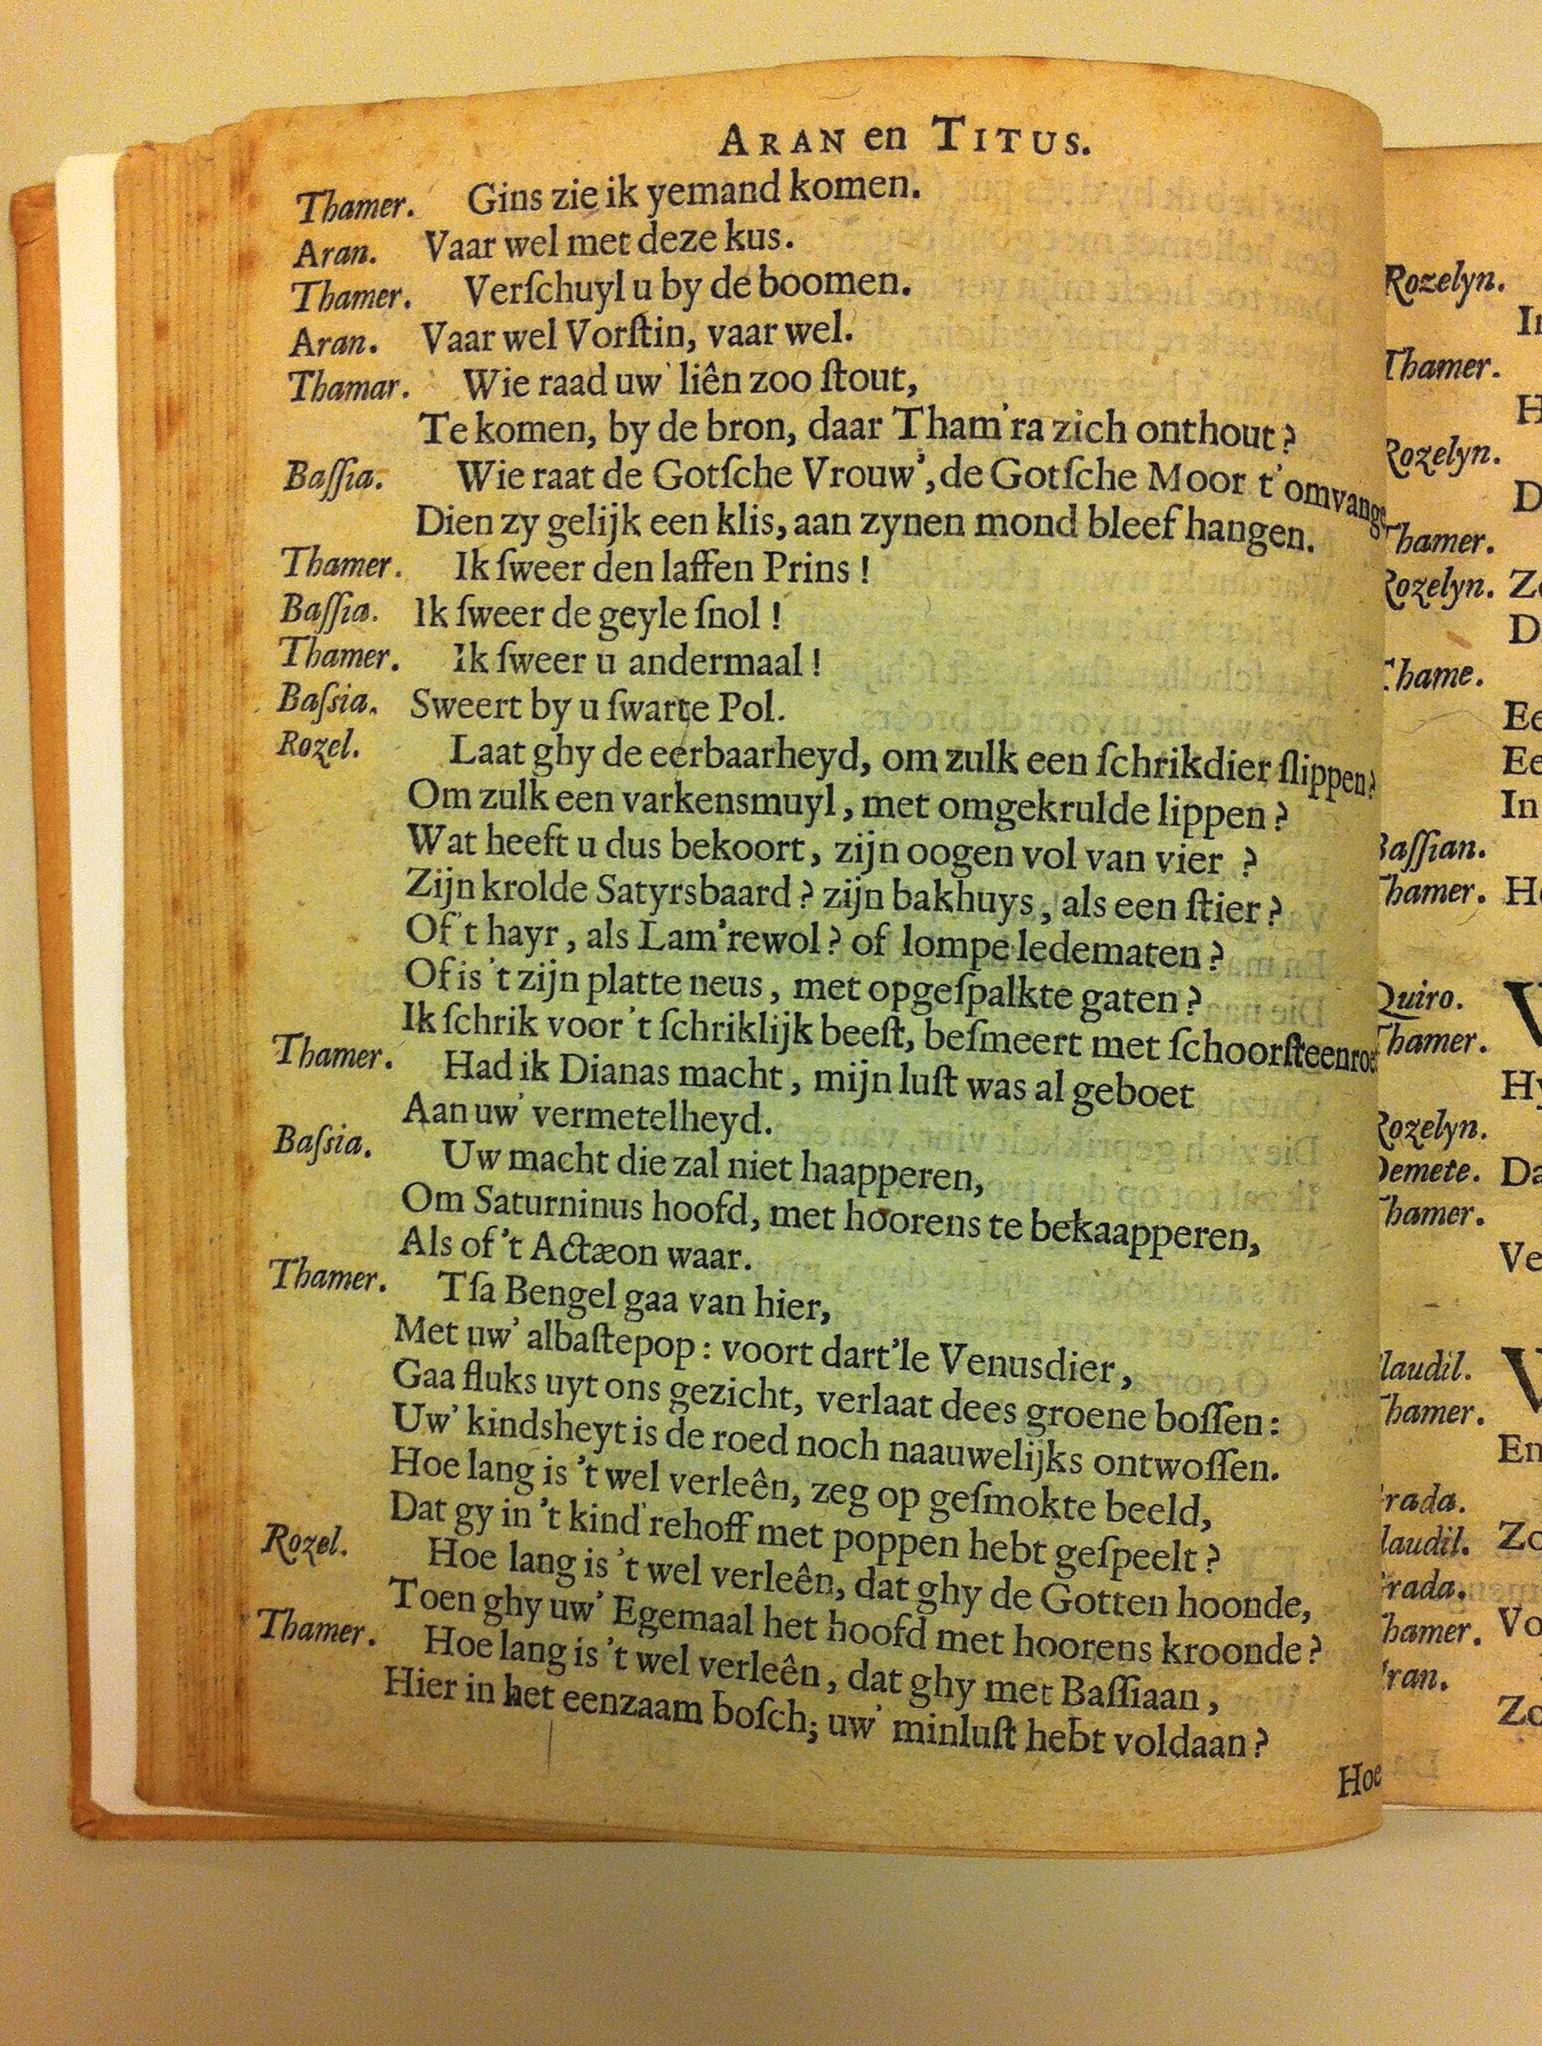 ARAN en TITUS.
Thamer. Gins zie ik yemand komen.
Aran. Vaar wel met deze kus.
Thamer. Verſchuyl u by de boomen.
Aran. Vaar wel Vorſtin, vaar wel.
Thamar. Wie raad uw' liên zoo ſtout,
Te komen, by de bron, daar Tham'ra zich onthout?
Baſſia. Wie raat de Gotſche Vrouw', de Gotſche Moor t'omvange
Dien zy gelijk een klis, aan zynen mond bleef hangen.
Thamer. Ik ſweer den laffen Prins!
Baſſia. Ik ſweer de geyle ſnol!
Thamer. Ik ſweer u andermaal!
Baſsia. Sweert by u ſwarte Pol.
Rozel. Laat ghy de eerbaarheyd, om zulk een ſchrikdier ſlippen?
Om zulk een varkensmuyl, met omgekrulde lippen?
Wat heeft u dus bekoort, zijn oogen vol van vier ?
Zijn krolde Satyrsbaard? zijn bakhuys, als een ſtier?
Of 't hayr, als Lam'rewol? of lompe ledematen?
Of is 't zijn platte neus, met opgeſpalkte gaten?
Ik ſchrik voor 't ſchriklijk beeſt, beſmeert met ſchoorſteenroe
Thamer. Had ik Dianas macht, mijn luſt was al geboet
Aan uw' vermetelheyd.
Baſsia. Uw macht die zal niet haapperen,
Om Saturninus hoofd, met hoorens te bekaapperen,
Als of 't Actæon waar.
Thamer. Tſa Bengel gaa van hier,
Met uw' albaſtepop: voort dart'le Venusdier,
Gaa fluks uyt ons gezicht, verlaat dees groene boſſen:
Uw' kindsheyt is de roed noch naauwelijks ontwoſſen.
Hoe lang is 't wel verleên, zeg op geſmokte beeld,
Dat gy in 't kind'rehoff met poppen hebt geſpeelt?
Rozel. Hoe lang is 't wel verleên, dat ghy de Gotten hoonde,
Toen ghy uw' Egemaal het hoofd met hoorens kroonde?
Thamer. Hoe lang is 't wel verleên, dat ghy met Baſſiaan,
Hier in het eenzaam boſch; uw' minluſt hebt voldaan?
Hoe
Rozelyn.
In
Thamer.
H
Rozelyn.
D
Thamer.
Rozelyn. Ze
D
Thame.
Ee
Ee
In
Baſſian.
Thamer. He
Quiro.
Thamer.
Hy
Rozelyn.
Demete. Da
Thamer.
Ve
Claudil.
Thamer.
En
Grada.
Claudil. Zo
Grada.
Thamer. Vo
Aran.
Zo